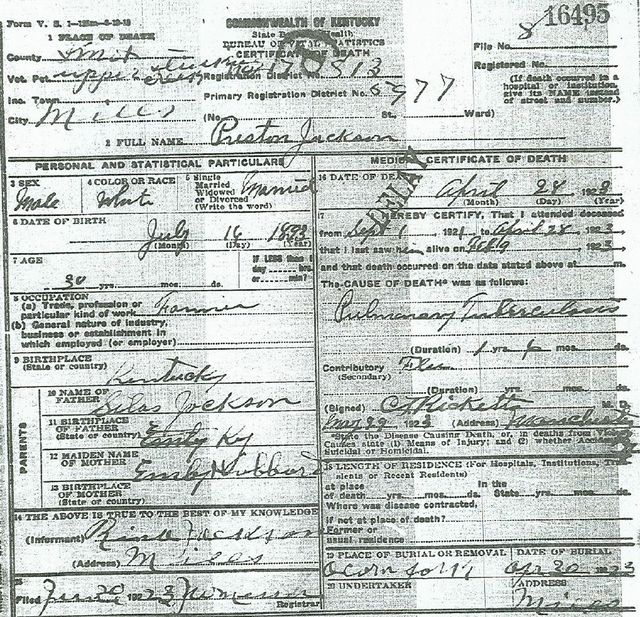 Form V. S. 1-125m-8-19-19
COMMONWEALTH OF KENTUCKY
8 16495
1 PLACE OF DEATH
State Health
BUREAU OF VITAL STATISTICS
CERTIFICATE OF DEATH
File No.
County
Registered No.
Vot. Pct. upper
Registration District
(If death occurred in a hospital or institution, give its NAME instead of street and number.)
Inc. Town
Primary Registration District No. 5977
City Mills
(No. St., Ward)
2 FULL NAME Preston Jackson
PERSONAL AND STATISTICAL PARTICULARS
MEDICAL CERTIFICATE OF DEATH
3 SEX
Male
4 COLOR OR RACE
White
5 Single
Married
Widowed
or Divorced
(Write the word)
Married
6 DATE OF BIRTH
July 16
(Month) (Day) (Year)
7 AGE
30 yrs. mos. ds.
IF LESS than 1
day hrs.
or min?
8 OCCUPATION
(a) Trade, profession or
particular kind of work Farmer
(b) General nature of industry,
business or establishment in
which employed (or employer)
9 BIRTHPLACE
(State or country)
Kentucky
PARENTS
10 NAME OF
FATHER
Silas Jackson
11 BIRTHPLACE
OF FATHER
(State or country) Ky
12 MAIDEN NAME
OF MOTHER
Emily Hubbard
13 BIRTHPLACE
OF MOTHER
(State or country)
14 THE ABOVE IS TRUE TO THE BEST OF MY KNOWLEDGE
(Informant) Jackson
(Address) Mills
15
Filed 1923
Registrar
16 DATE OF DEATH
DELAY
April 28 192
(Month) (Day) (Year)
17 I HEREBY CERTIFY, That I attended deceased
from Sept 1, 192 to April 28, 1923
that I last saw him alive on Feb 9, 1923
and that death occurred on the date stated above at m.
The CAUSE OF DEATH* was as follows:
Pulmonary Tuberculosis
(Duration) 1 yrs. 6 mos. ds.
Contributory Flu
(Secondary)
(Duration) yrs. mos. ds.
(Signed) Rickett M. D.
192 (Address)
*State the Disease Causing Death, or, in deaths from
Causes state (1) Means of Injury; and (2) whether
Suicidal or Homicidal.
18 LENGTH OF RESIDENCE (For Hospitals, Institutions,
or Recent Residents)
at place
of death yrs. mos. ds.
In the
State yrs. mos. ds.
Where was disease contracted,
if not at place of death?
Former or
usual residence
19 PLACE OF BURIAL OR REMOVAL
DATE OF BURIAL
Apr 1923
20 UNDERTAKER
ADDRESS
Mills